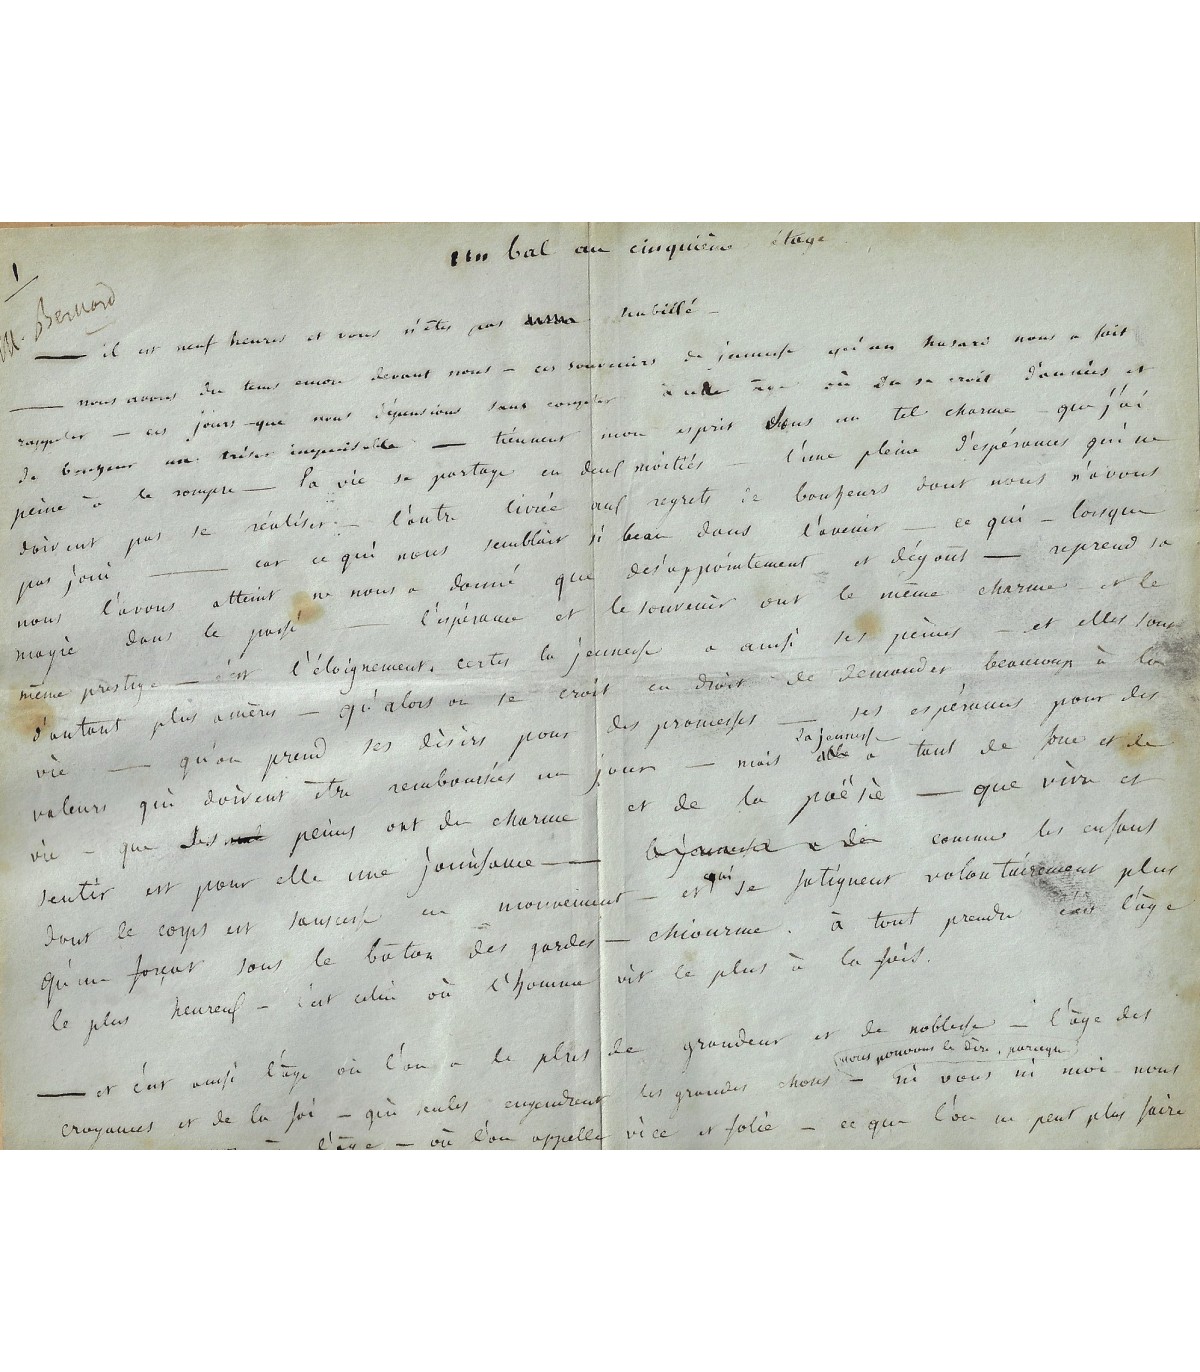 Un bal au cinquième étage
1
M. Bernard
— il est neuf heures et vous n'êtes pas habillé —
— nous avons du tems encore devant nous — ces souvenirs de jeunesse qu'un hasard nous a fait
rappeler — ces jours que nous dépensions sans compter à un âge où on se croit d'années et
de bonheur un trésor inépuisable — tiennent mon esprit sous un tel charme — que j'ai
peine à le rompre — la vie se partage en deux moitiés — l'une pleine d'espérances qui ne
doivent pas se réaliser — l'autre livrée aux regrets de bonheurs dont nous n'avons
pas joui — car ce qui nous semblait si beau dans l'avenir — ce qui — lorsque
nous l'avons atteint ne nous a donné que désappointement et dégout — reprend sa
magie dans le passé — l'espérance et le souvenir ont le même charme — et le
même prestige — c'est l'éloignement. certes la jeunesse a aussi ses peines — et elles sont
d'autant plus amères — qu'alors on se croit en droit de demander beaucoup à la
vie — qu'on prend ses désirs pour des promesses — ses espérances pour des
valeurs qui doivent être remboursées un jour — mais la jeunesse a tant de sève et de
vie — que les peines ont du charme et de la poësie — que vivre et
sentir est pour elle une jouissance — la jeunesse a de comme les enfants
dont le corps est sans cesse en mouvement — et qui se fatiguent volontairement plus
qu'un forçat sous le bâton des gardes-chiourme. à tout prendre c'est l'âge
le plus heureux — c'est celui où l'homme vit le plus à la fois.
— et c'est aussi l'âge où l'on a le plus de grandeur et de noblesse — l'âge des
croyances et de la foi — qui seules engendrent les grandes choses — (nous pouvons le dire, parceque) ni vous ni moi nous
l'âge — où l'on appelle vice et folie — ce que l'on ne peut plus faire